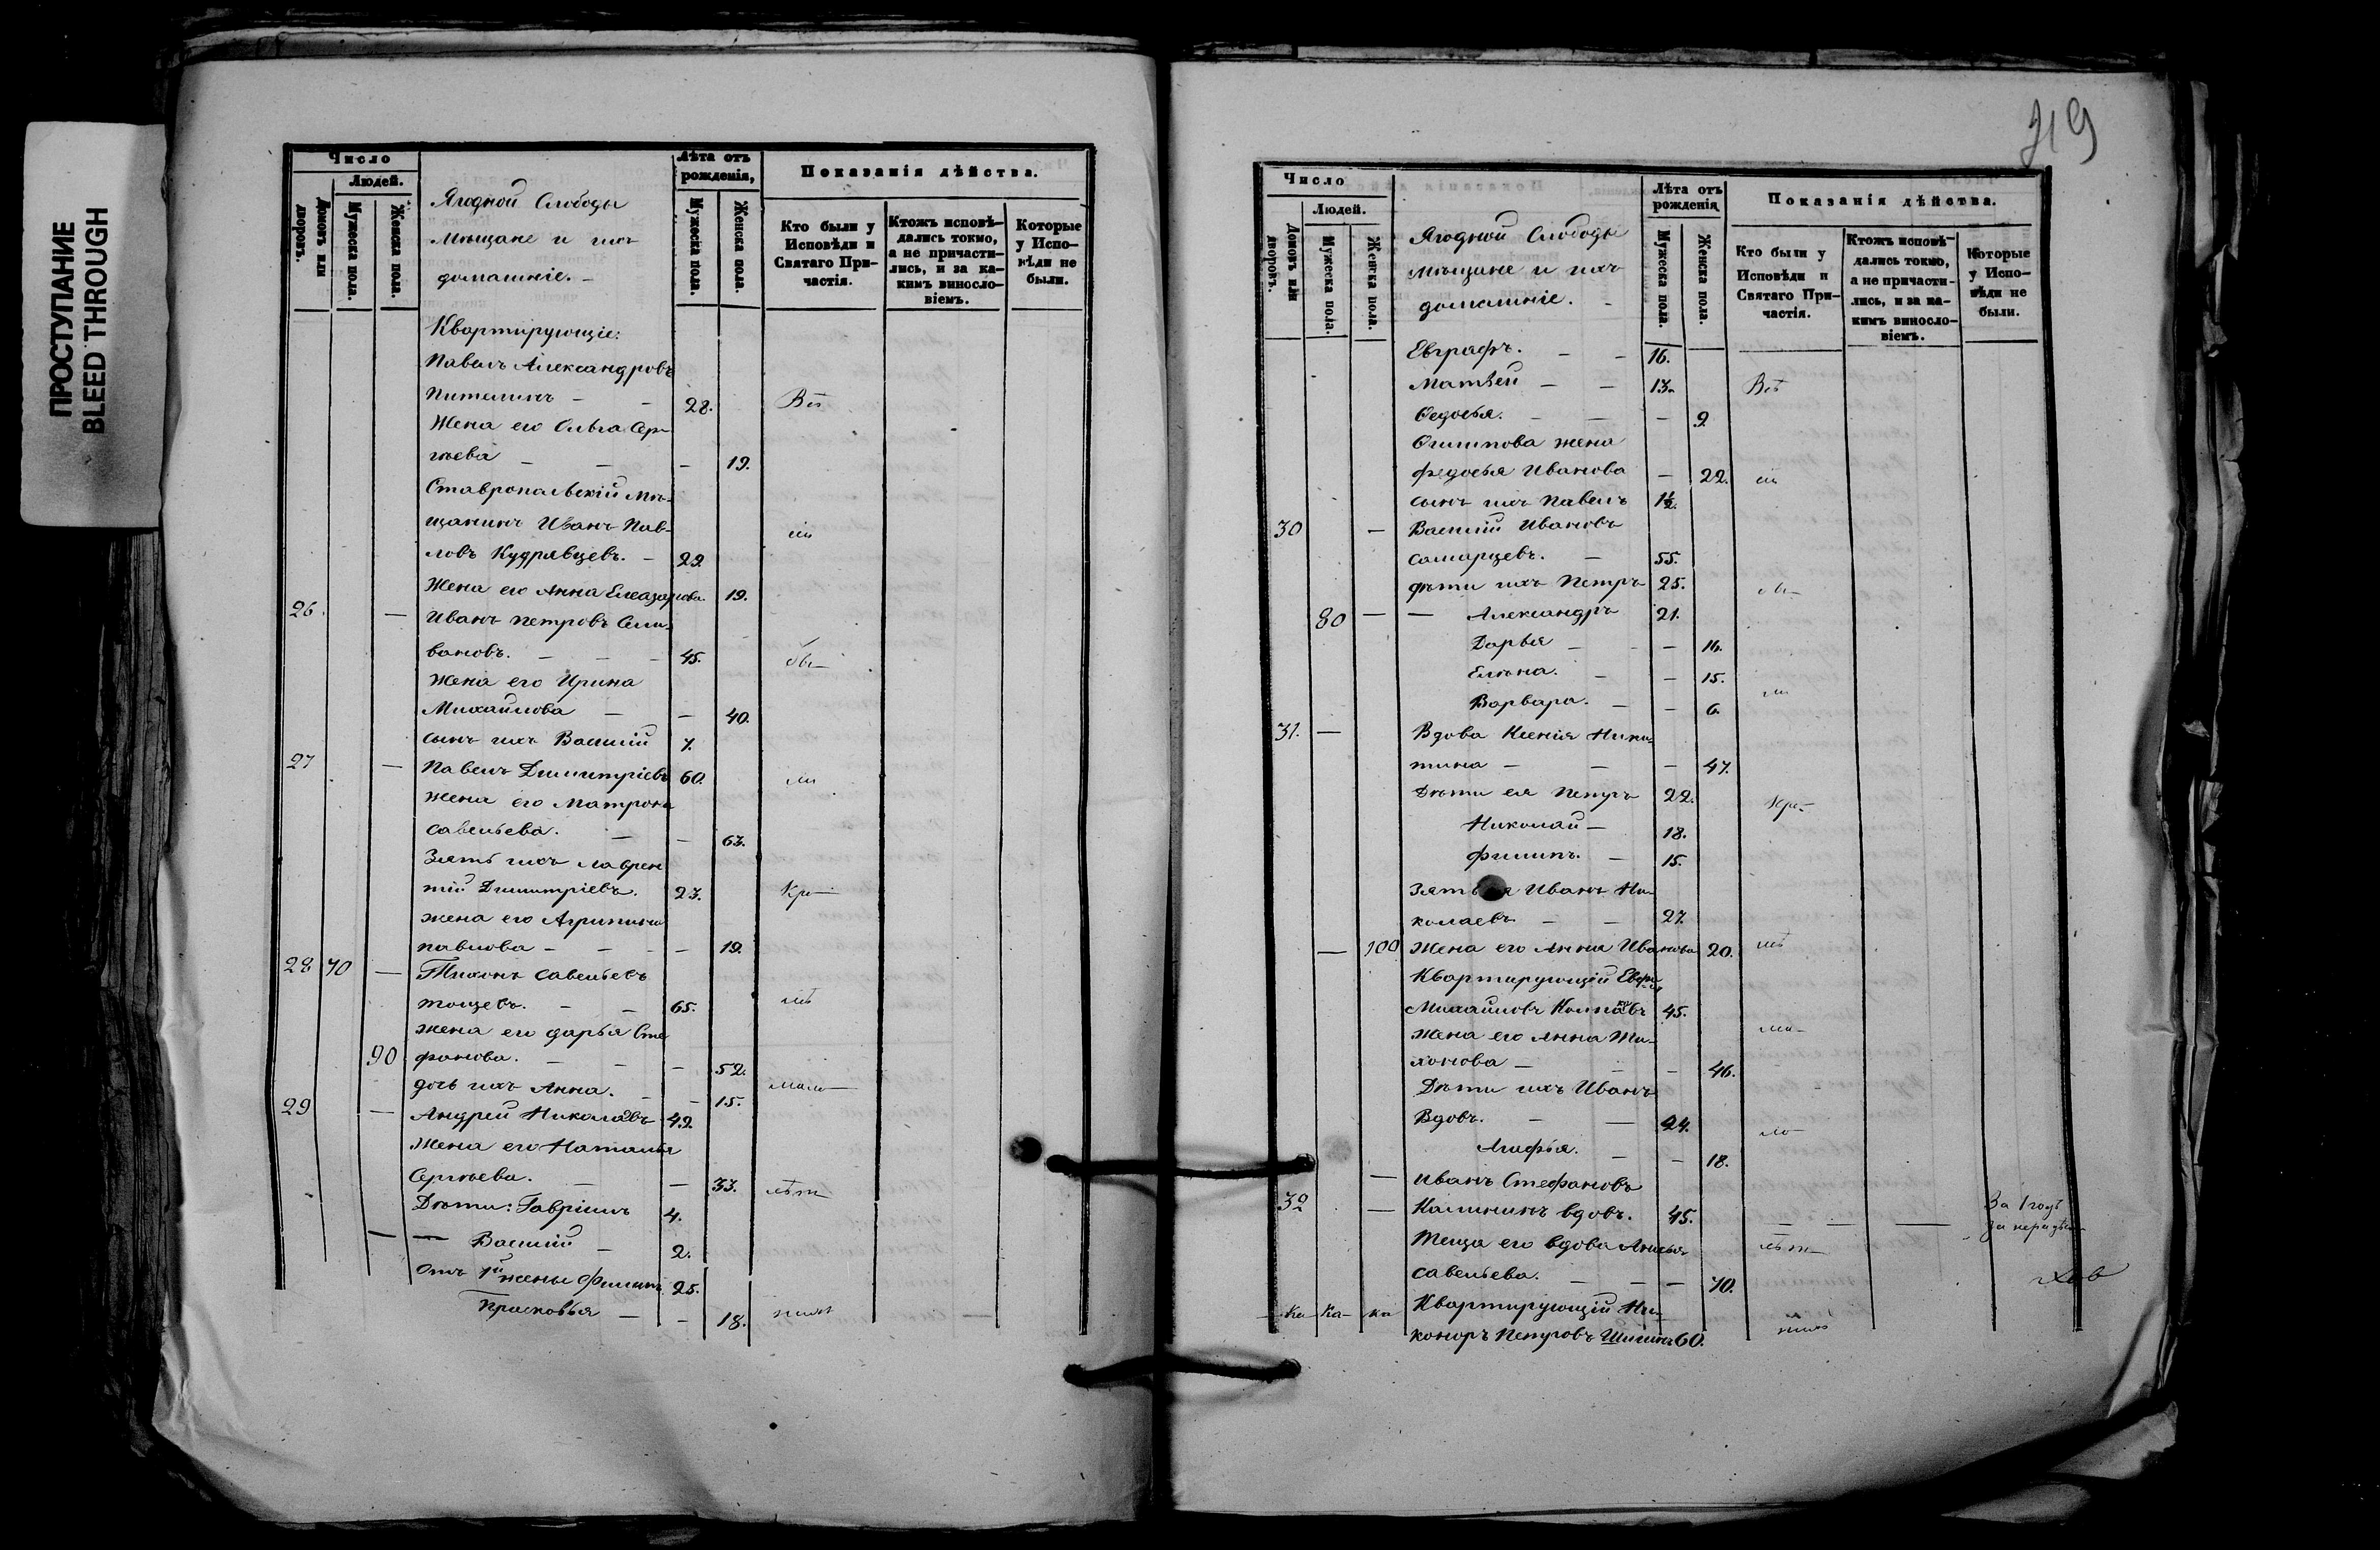 ПРОСТУПАНИЕ
BLEED THROUGH
Число
Людей.
Домовъ или дворовъ.
Мужеска пола.
Женска пола.
Ягодной Слободы
Мѣщане и ихъ
домашніе. –
Лѣта отъ рожденія,
Мужеска пола.
Женска пола.
Показанія дѣйства.
Кто были у Исповѣди и Святаго Причастія.
Ктожъ исповѣдались токмо, а не причастились, и за какимъ винословіемъ.
Которые у Исповѣди не были.
Квартирующіе:
Павелъ Александровъ
28. Всѣ
Жена его Ольга Сер-
гѣева – – – 19.
Ставропольскій Мѣ-
щанинъ Иванъ Пав-
ловъ Кудрявцевъ. – 22
Жена его Анна Елеазарова. 19.
26. – Иванъ Петровъ Сели-
вановъ. – – – 45.
Жена его Ирина
Михайлова – – 40.
сынъ ихъ Василій 7.
27 – Павелъ Димитріевъ 60.
жена его Матрона
савельева. – – 63.
Зять ихъ Лаврен
тій Димитріевъ. 23.
жена его Агрипина
павлова – – – 19.
28 70 – Тихонъ савельевъ
65.
жена его дарья Сте
90 фанова. – – – 52.
дочь ихъ Анна. – – 15.
29 – Андрей Николаевъ 42.
Жена его Наталья
Сергѣева. – – 33.
Дѣти: Гавріилъ 4.
– – Василій – 2.
Отъ 1й жены Филипъ 25.
Прасковья – – 18.
319
Число
Людей.
Домовъ или дворовъ.
Мужеска пола.
Женска пола.
Ягодной Слободы
Мѣщане и ихъ
домашніе. –
Лѣта отъ рожденія
Мужеска пола.
Женска пола.
Показанія дѣйства.
Кто были у Исповѣди и Святаго Причастія.
Ктожъ исповѣдались токмо, а не причастились, и за какимъ винословіемъ.
Которые у Исповѣди не были.
Евграфъ. – – 16.
Матвей – – 13. Всѣ
Федосья. – – – 9.
жена
федосья Иванова – 22.
сынъ ихъ Павелъ 1½.
30 – Василій Ивановъ
самарцевъ. – 55.
дѣти ихъ Петръ 25.
80 – – Александръ 21.
Дарья – – – 16.
Елена. – – 15.
Варвара. – – 6.
31. – Вдова Ксенія Ники-
тина – – – 47.
Дѣти ея Петръ 22.
Николай – 18.
Филипъ. – 15.
Зять ея Иванъ Ни-
колаевъ – – 27.
– 100 Жена его Анна Иванова 20.
Квартирующій
Михайловъ 45.
Жена его Анна Ти-
хонова – – – 46.
Дѣти ихъ Иванъ
Вдовъ. – – 24.
Агафья. – – 18.
– Иванъ Стефановъ
32 – Калининъ вдовъ. 45. – – –
За 1 годъ
Теща его вдова Анисья
савельева. – – – 70.
Квартирующій Ни-
каноръ Петровъ 60.